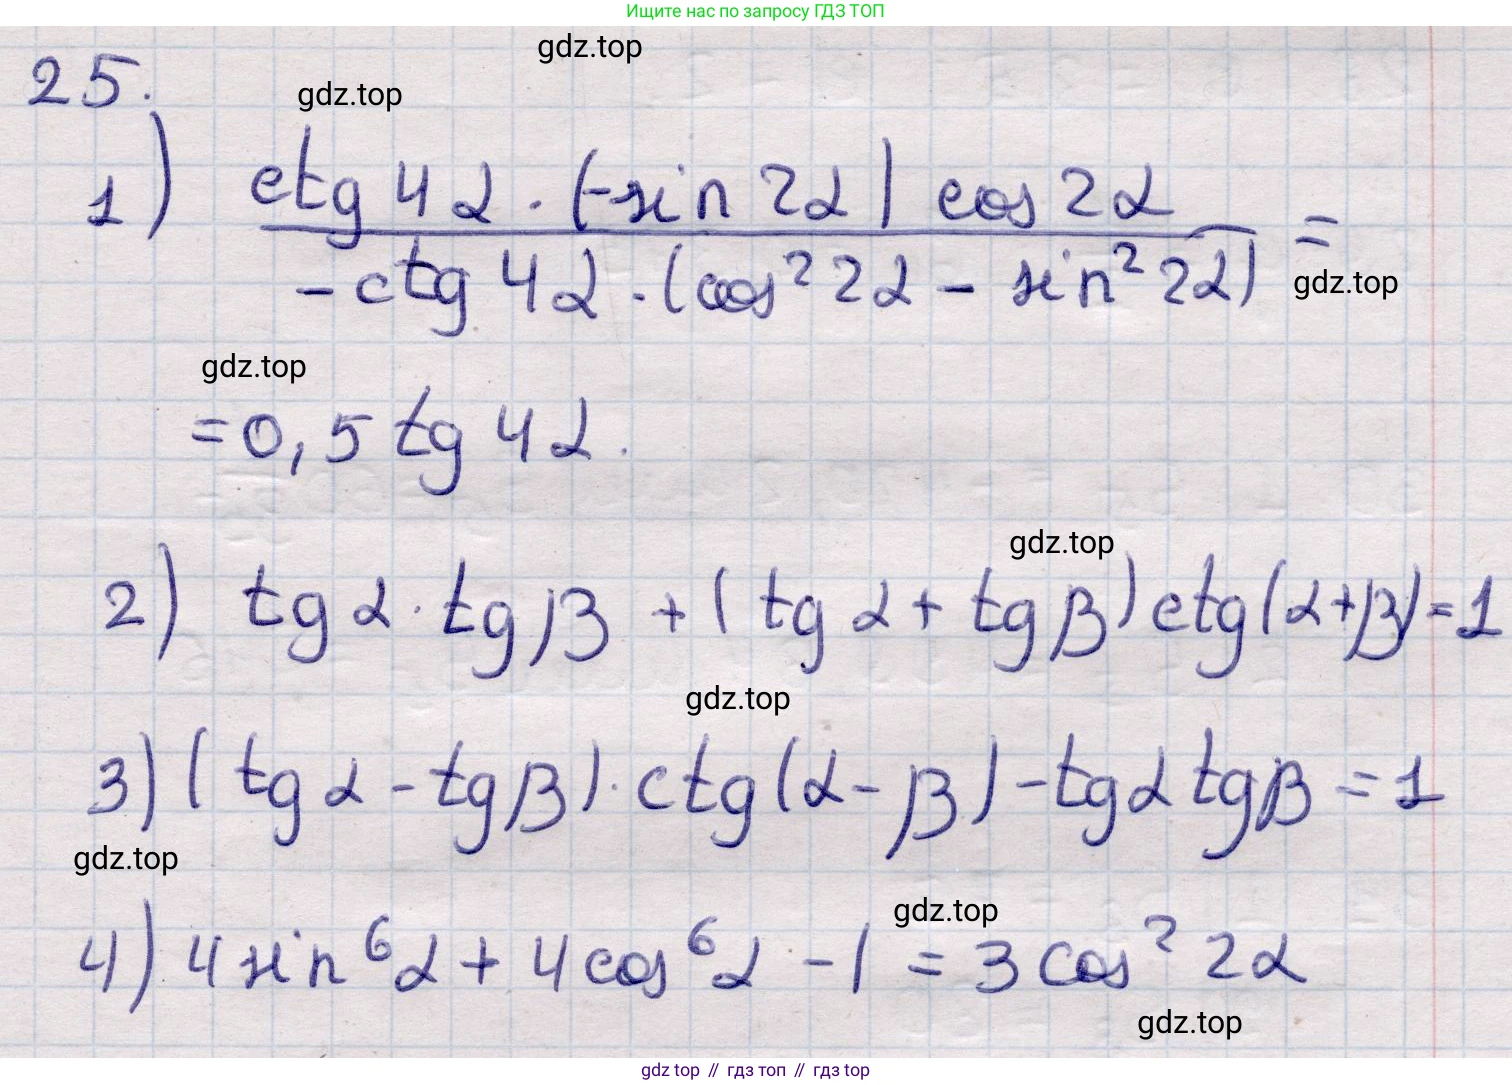 Ищите нас по запросу ГДЗ ТОП
gdz.top
25.
gdz.top
1) ctg 4α · (-sin 2α) cos 2α
-ctg 4α · (cos² 2α - sin² 2α) =
gdz.top
gdz.top
= 0,5 tg 4α.
gdz.top
2) tg α · tg β + (tg α + tg β) ctg (α+β) = 1
gdz.top
3) (tg α - tg β) · ctg (α - β) - tg α tg β = 1
gdz.top
gdz.top
4) 4 sin⁶ α + 4 cos⁶ α - 1 = 3 cos² 2α
gdz.top
gdz top // гдз топ // гдз top